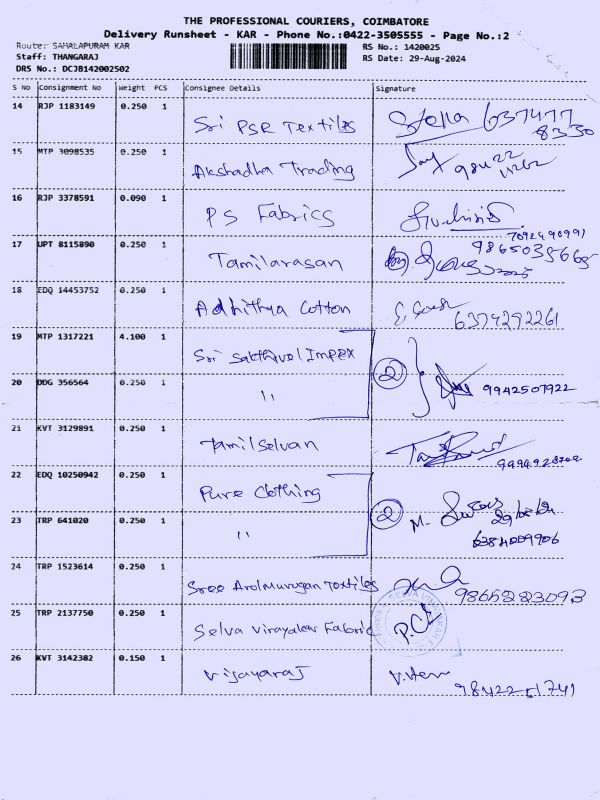 THE PROFESSIONAL COURIERS, COIMBATORE
Delivery Runsheet - KAR - Phone No.:0422-3505555 - Page No.:2
Route: SAMALAPURAM KAR RS No.: 1420025
Staff: THANGARAJ RS Date: 29-Aug-2024
DRS No.: DCJB142002502
S No Consignment No Weight PCS Consignee Details Signature
14 RJP 1183149 0.250 1
Sri PSR Textiles Stella 637477
8330
15 MTP 3098535 0.250 1
Akshadha Trading
16 RJP 3378591 0.090 1
PS Fabrics
7092490991
17 UPT 8115890 0.250 1
Tamilarasan 9865035665
18 EDQ 14453752 0.250 1
Adhithya Cotton
6374292261
19 MTP 1317221 4.100 1
Sri Sakthivel Impex
2
20 DDG 356564 0.250 1
" 9942507922
21 KVT 3129891 0.250 1
Tamil Selvan
22 EDQ 10250942 0.250 1
Pure Clothing
2 M.
23 TRP 641020 0.250 1
"
24 TRP 1523614 0.250 1
Sree Arulmurugan Textiles
9865223093
25 TRP 2137750 0.250 1
Selva Vinayakar Fabric
26 KVT 3142382 0.150 1
Vijayaraj V.Hem